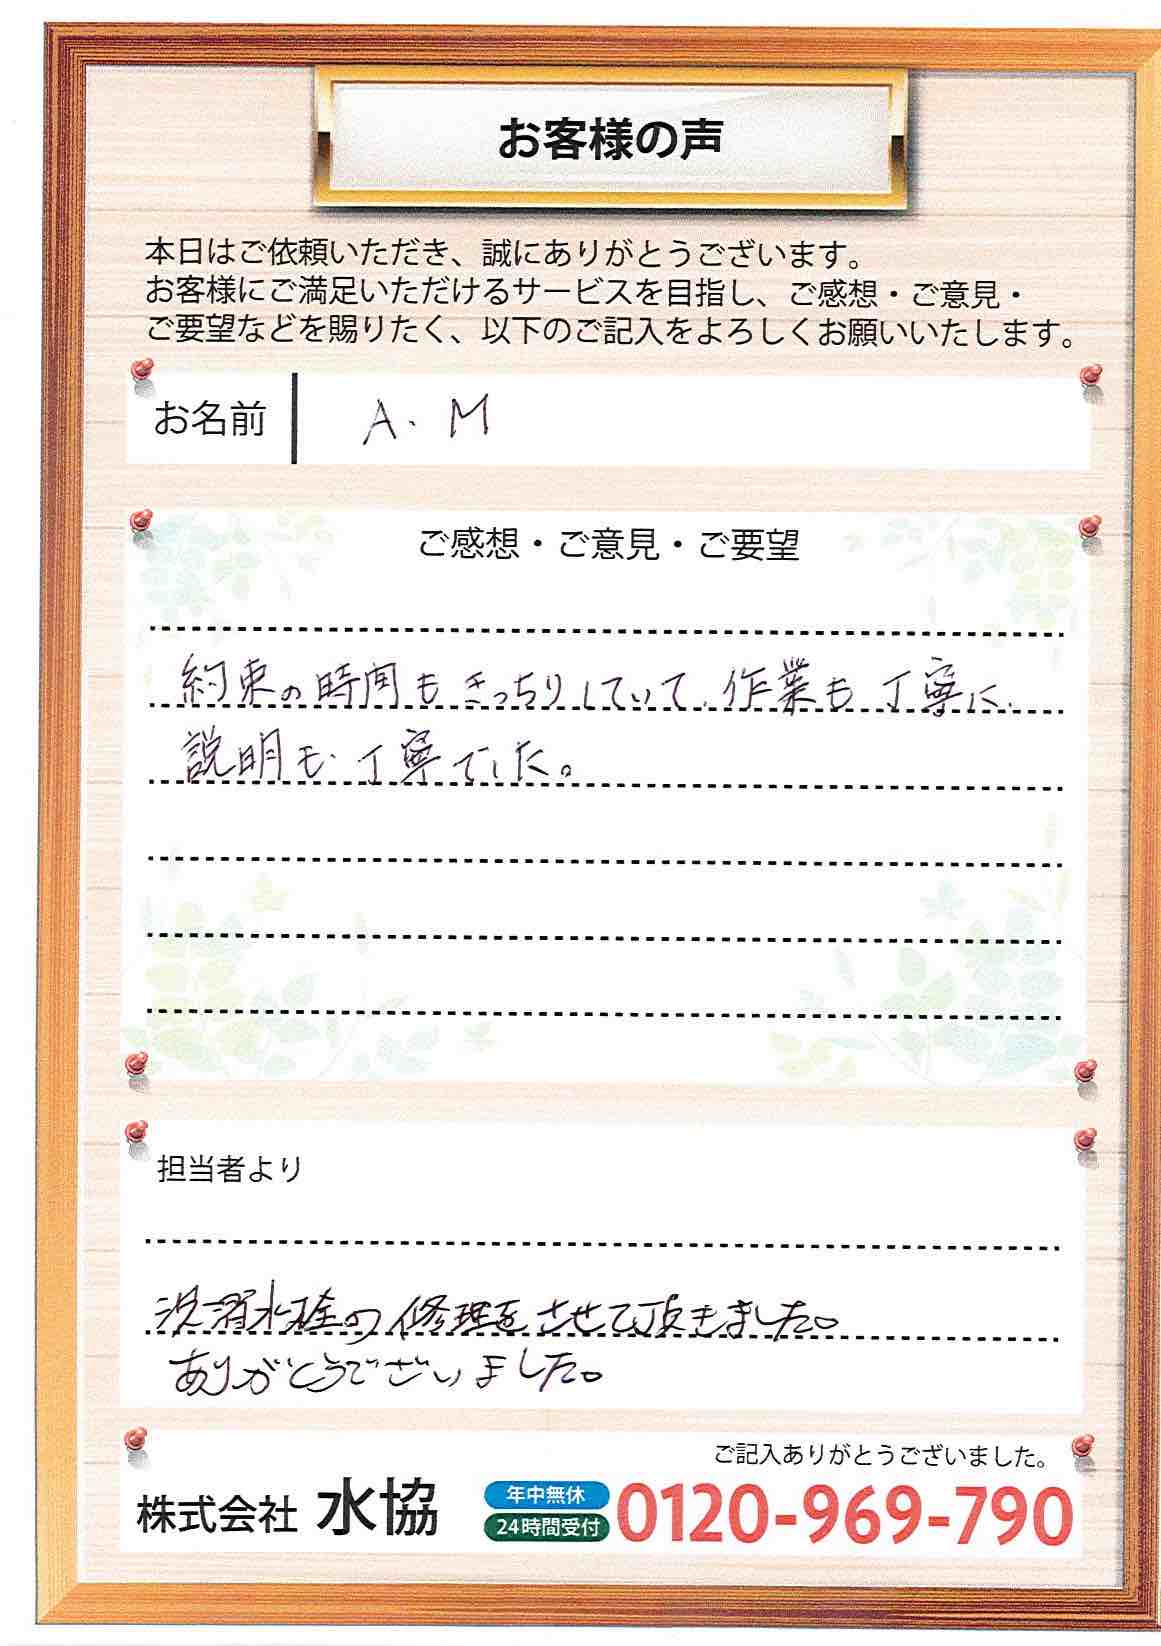 お客様の声
本日はご依頼いただき、誠にありがとうございます。
お客様にご満足いただけるサービスを目指し、ご感想・ご意見・
ご要望などを賜りたく、以下のご記入をよろしくお願いいたします。
お名前 A.M
ご感想・ご意見・ご要望
約束の時間もきっちりしていて、作業も丁寧に、
説明も丁寧でした。
担当者より
洗濯水栓の修理をさせて頂きました。
ありがとうございました。
ご記入ありがとうございました。
株式会社 水協 年中無休 24時間受付 0120-969-790